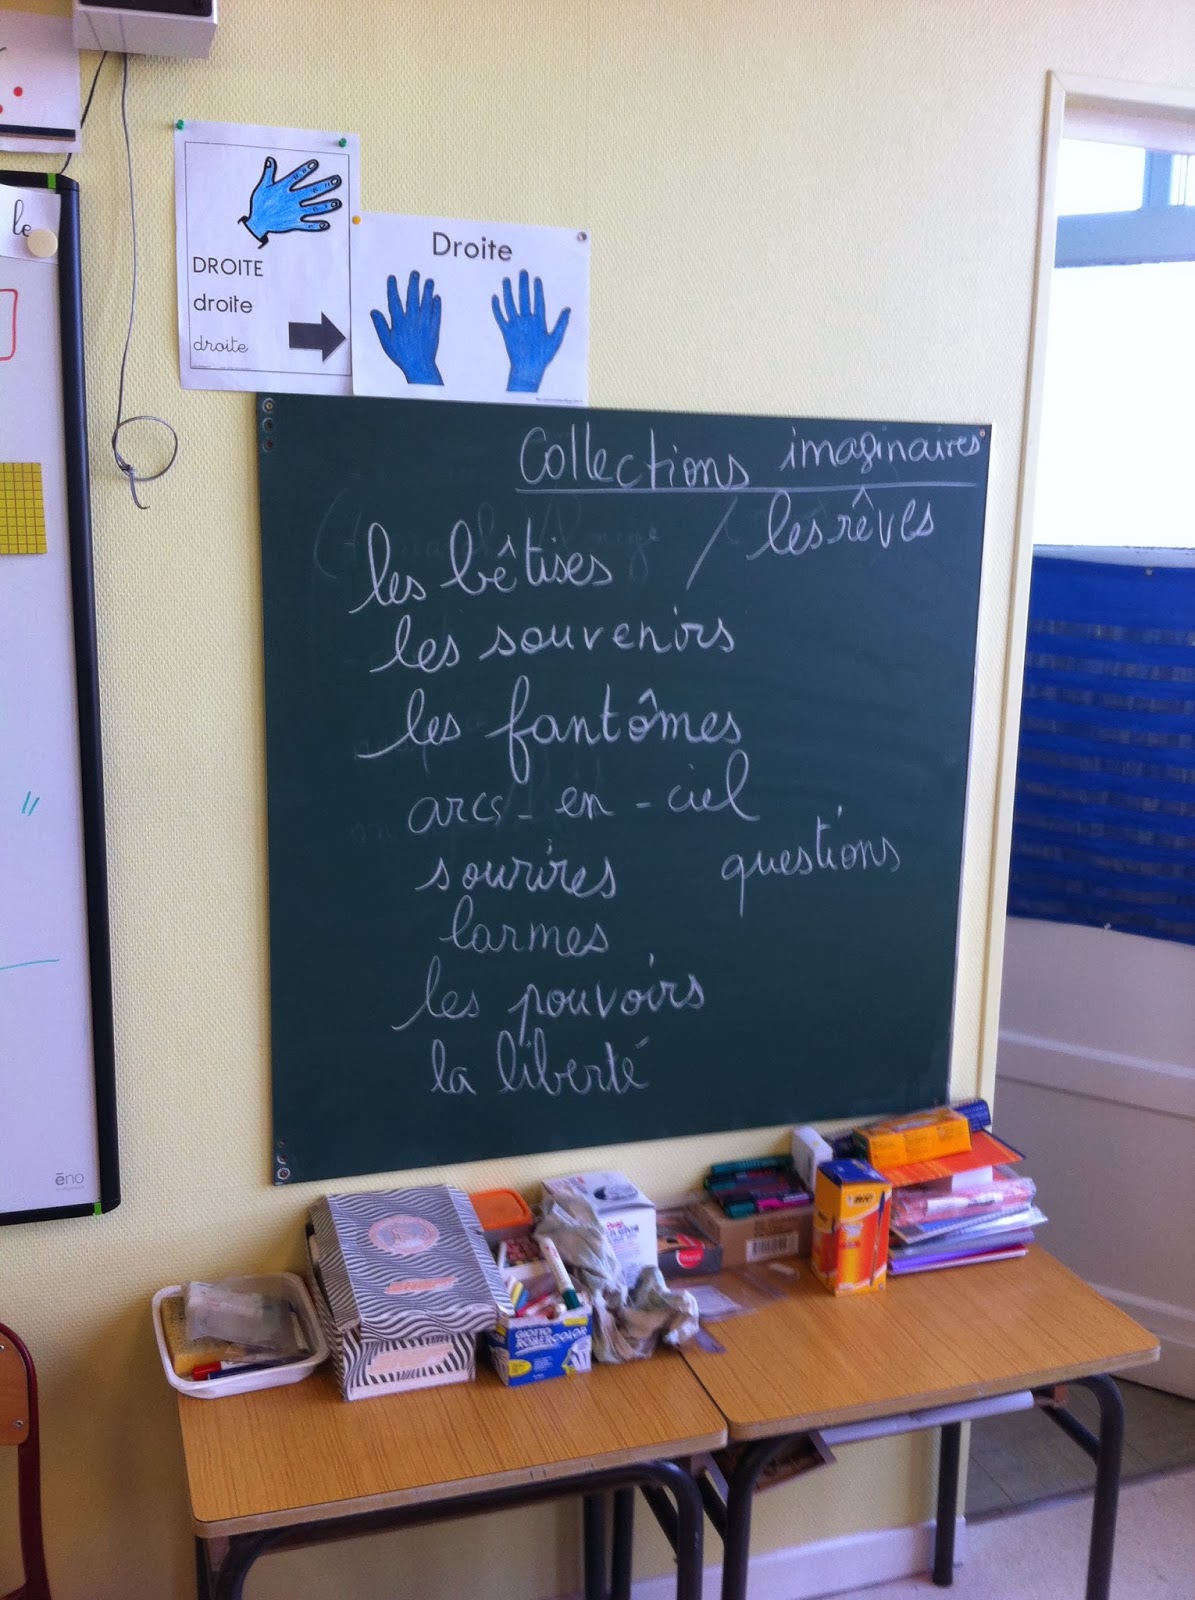 le
DROITE
droite
droite
Droite
Collections imaginaires
les bêtises / les rêves
les souvenirs
les fantômes
arcs-en-ciel
sourires questions
larmes
les pouvoirs
la liberté
eno
GIOTTO
ROBERCOLOR
BIC